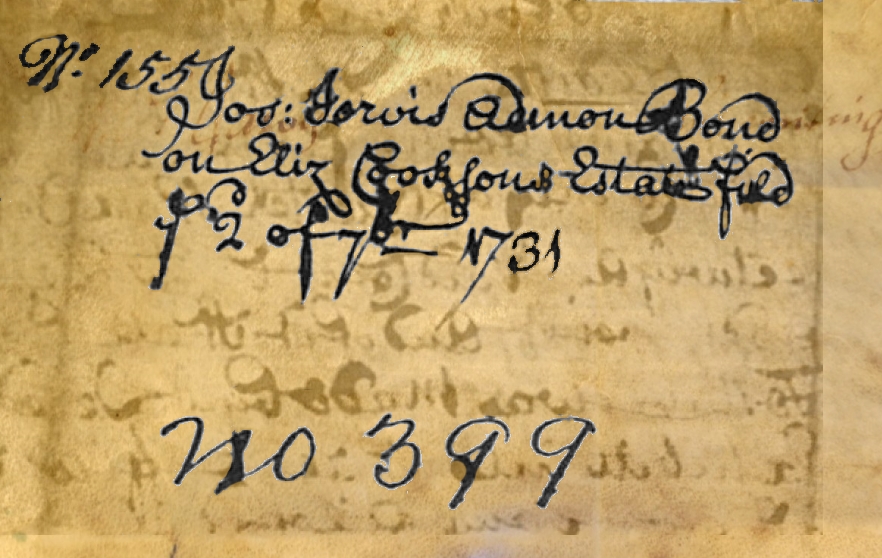 No. 155
Jos: Jervis Admon Bond
on Eliz Cooksons Estate fild
ye 2d of 7br 1731
no 399